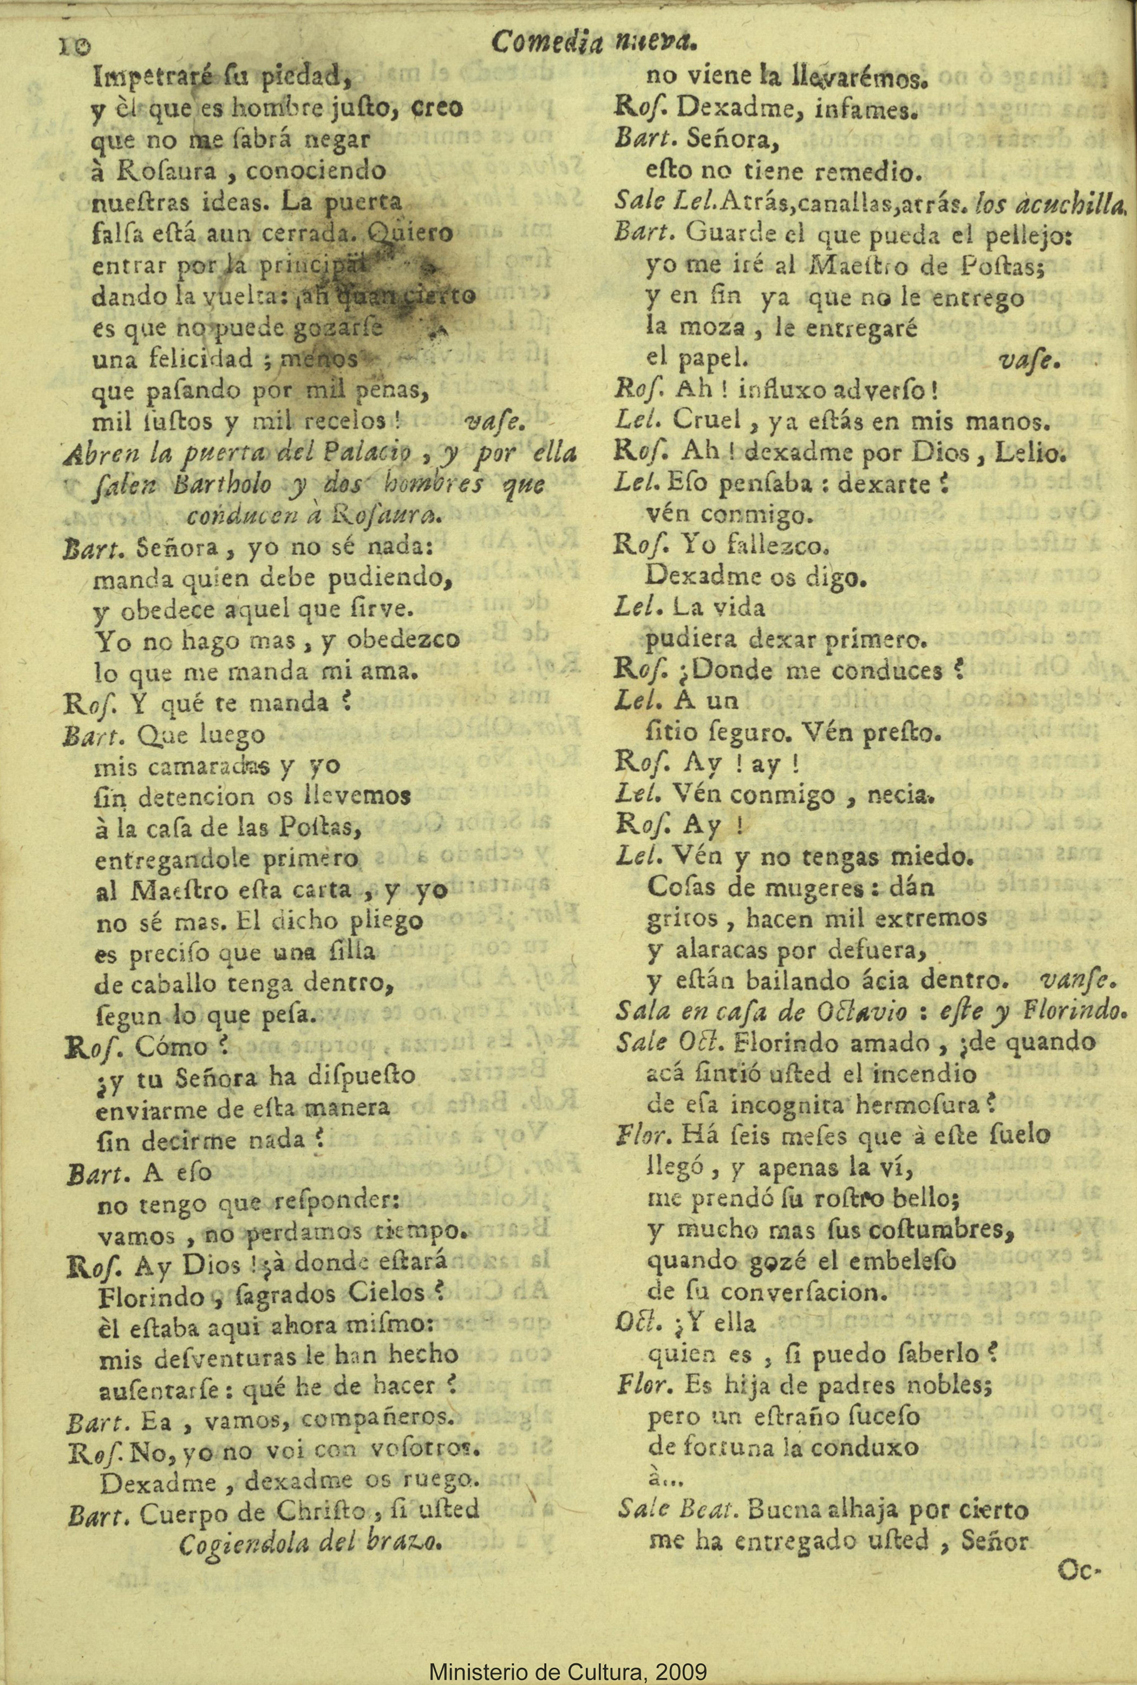 10
Comedia nueva.
Impetraré ſu piedad,
y èl que es hombre juſto, creo
que no me ſabrá negar
à Roſaura , conociendo
nueſtras ideas. La puerta
falſa eſtá aun cerrada. Quiero
entrar por la principal
dando la vuelta: ¡ah quan cierto
es que no puede gozarſe
una felicidad ; menos
que paſando por mil penas,
mil ſuſtos y mil recelos ! vaſe.
Abren la puerta del Palacio , y por ella
ſalen Bartholo y dos hombres que
conducen à Roſaura.
Bart. Señora , yo no sé nada:
manda quien debe pudiendo,
y obedece aquel que ſirve.
Yo no hago mas , y obedezco
lo que me manda mi ama.
Roſ. Y qué te manda ?
Bart. Que luego
mis camaradas y yo
ſin detencion os llevemos
à la caſa de las Poſtas,
entregandole primero
al Maeſtro eſta carta , y yo
no sé mas. El dicho pliego
es preciſo que una ſilla
de caballo tenga dentro,
ſegun lo que peſa.
Roſ. Cómo ?
¿y tu Señora ha diſpueſto
enviarme de eſta manera
ſin decirme nada ?
Bart. A eſo
no tengo que reſponder:
vamos , no perdamos tiempo.
Roſ. Ay Dios ! ¿à donde eſtará
Florindo , ſagrados Cielos ?
èl eſtaba aqui ahora miſmo:
mis deſventuras le han hecho
auſentarſe : qué he de hacer ?
Bart. Ea , vamos, compañeros.
Roſ. No, yo no voi con voſotros.
Dexadme , dexadme os ruego.
Bart. Cuerpo de Chriſto , ſi uſted
Cogiendola del brazo.
no viene la llevarémos.
Roſ. Dexadme, infames.
Bart. Señora,
eſto no tiene remedio.
Sale Lel. Atrás, canallas, atrás. los acuchilla.
Bart. Guarde el que pueda el pellejo:
yo me iré al Maeſtro de Poſtas;
y en fin ya que no le entrego
la moza , le entregaré
el papel. vaſe.
Roſ. Ah ! influxo adverſo !
Lel. Cruel , ya eſtás en mis manos.
Roſ. Ah ! dexadme por Dios , Lelio.
Lel. Eſo penſaba : dexarte ?
vén conmigo.
Roſ. Yo fallezco.
Dexadme os digo.
Lel. La vida
pudiera dexar primero.
Roſ. ¿Donde me conduces ?
Lel. A un
ſitio ſeguro. Vén preſto.
Roſ. Ay ! ay !
Lel. Vén conmigo , necia.
Roſ. Ay !
Lel. Vén y no tengas miedo.
Coſas de mugeres : dán
gritos , hacen mil extremos
y alaracas por defuera,
y eſtán bailando ácia dentro. vanſe.
Sala en caſa de Octavio : eſte y Florindo.
Sale Oct. Florindo amado , ¿de quando
acá ſintió uſted el incendio
de eſa incognita hermoſura ?
Flor. Há ſeis meſes que à eſte ſuelo
llegó , y apenas la ví,
me prendó ſu roſtro bello;
y mucho mas ſus coſtumbres,
quando gozé el embeleſo
de ſu converſacion.
Oct. ¿Y ella
quien es , ſi puedo ſaberlo ?
Flor. Es hija de padres nobles;
pero un eſtraño ſuceſo
de fortuna la conduxo
à...
Sale Beat. Buena alhaja por cierto
me ha entregado uſted , Señor
Oc-
Ministerio de Cultura, 2009